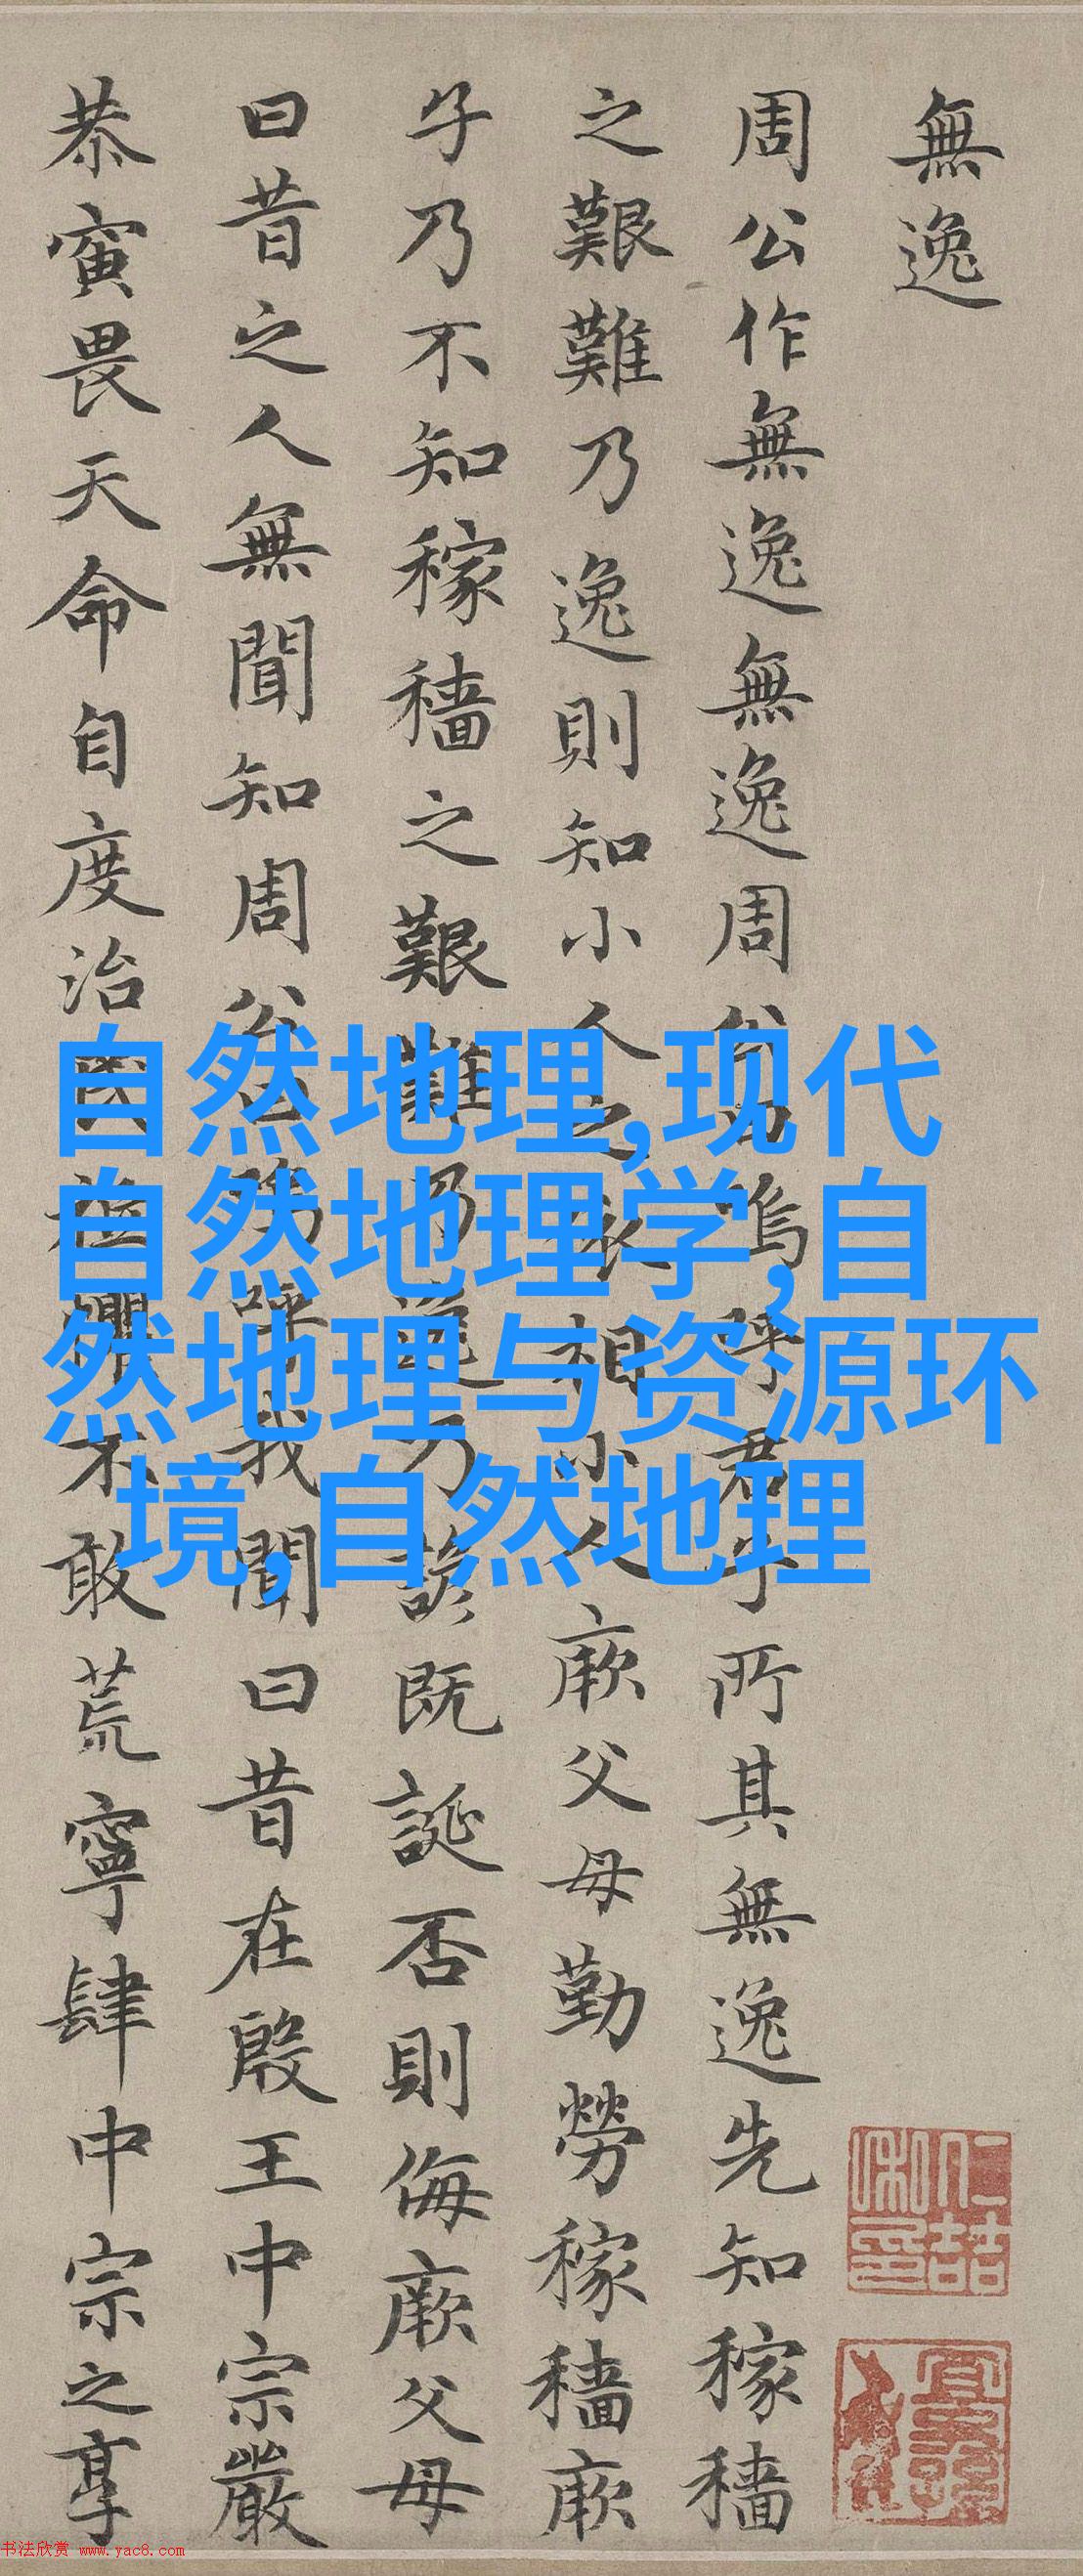 無逸
周公作無逸無逸周公曰嗚呼君子所其無逸先知稼穡
之艱難乃逸則知小人之依相小人厥父母勤勞稼穡厥
子乃不知稼穡之艱難乃逸乃諺既誕否則侮厥父母
曰昔之人無聞知周公曰嗚呼我聞曰昔在殷王中宗嚴
恭寅畏天命自度治民祗懼不敢荒寧肆中宗之享
自然地理,现代
自然地理学,自
然地理与资源环
境,自然地理
书法欣赏 www.yac8.com